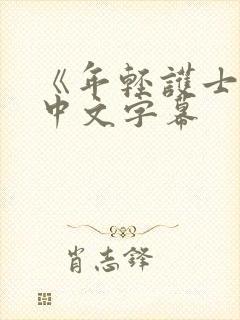 《年轻護士
中文字幕
肖志鋒